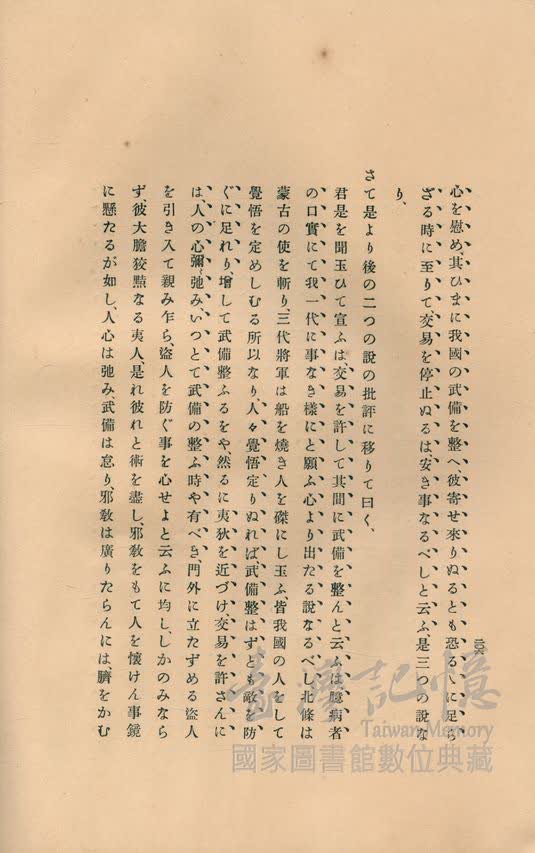 心を慰め、其ひまに我國の武備を整へ、彼寄せ來りぬるとも恐るゝに足ら
ざる時に至りて交易を停止ぬるは、安き事なるべしと云ふ、是三つの說な
り、
さて是より後の二つの說の批評に移りて曰く、
君是を聞玉ひて宣ふは交易を許して其間に武備を整んと云ふは臆病者
の口實にて我一代に事なき樣にと願ふ心より出たる說なるべし北條は
蒙古の使を斬り、三代將軍は船を燒き人を磔にし玉ふ皆我國の人をして
覺悟を定めしむる所以なり、人々覺悟定りぬれば武備整はずとも敵を防
ぐに足れり、增して武備整ふるをや、然るに夷狄を近づけ、交易を許さんに
は、人の心彌〻弛み、いつとて武備の整ふ時や有べき、門外に立たずめる盜人
を引き入て親み乍ら、盜人を防ぐ事を心せよと云ふに均し、しかのみなら
ず、彼大膽狡黠なる夷人、是れ彼れと術を盡し、邪敎をもて人を懷けん事鏡
に懸たるが如し、人心は弛み、武備は怠り、邪敎は廣りたらんには、臍をかむ
臺灣記憶
Taiwan Memory
國家圖書館數位典藏